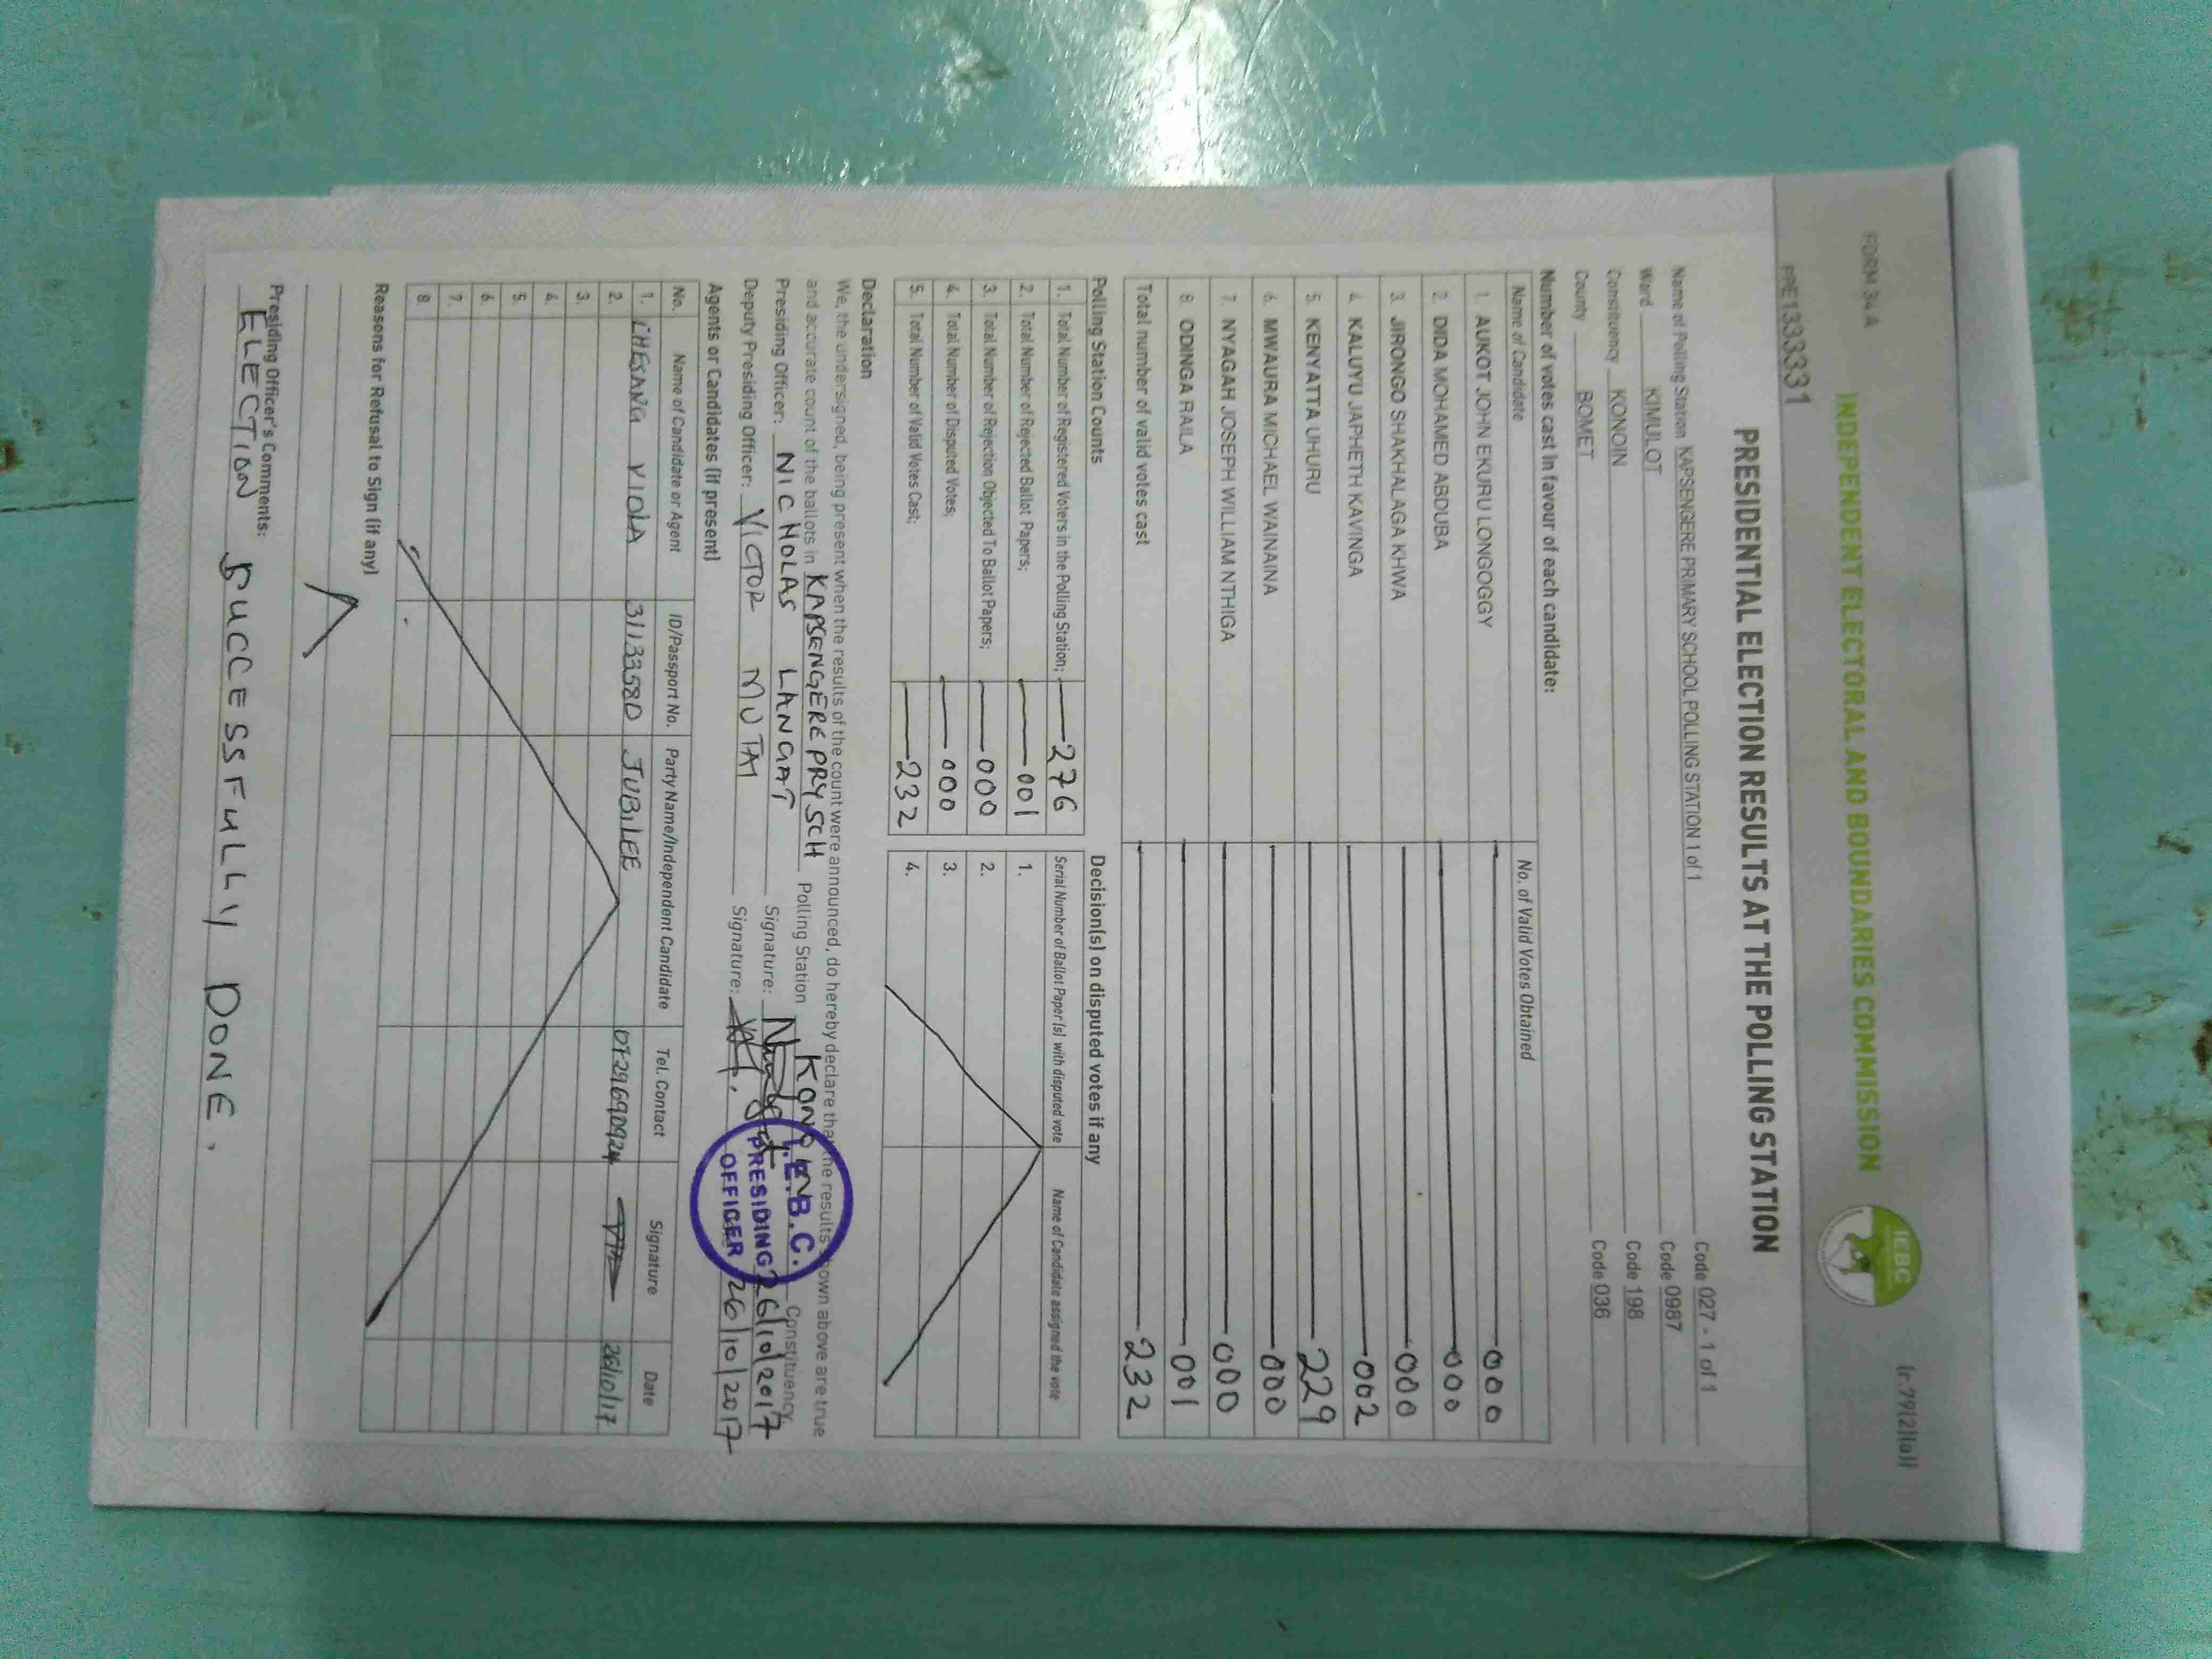 FORM 34 A
(r.79(2)(a))
INDEPENDENT ELECTORAL AND BOUNDARIES COMMISSION
IEBC
PPE133331
PRESIDENTIAL ELECTION RESULTS AT THE POLLING STATION
Name of Polling Station KAPSENGERE PRIMARY SCHOOL POLLING STATION 1 of 1 Code 027 - 1 of 1
Ward KIMULOT Code 0987
Constituency KONOIN Code 198
County BOMET Code 036
Number of votes cast in favour of each candidate:
Name of Candidate No. of Valid Votes Obtained
1. AUKOT JOHN EKURU LONGOGGY 000
2. DIDA MOHAMED ABDUBA 000
3. JIRONGO SHAKHALAGA KHWA 000
4. KALUYU JAPHETH KAVINGA 002
5. KENYATTA UHURU 229
6. MWAURA MICHAEL WAINAINA 000
7. NYAGAH JOSEPH WILLIAM NTHIGA 000
8. ODINGA RAILA 001
Total number of valid votes cast 232
Polling Station Counts
1. Total Number of Registered Voters in the Polling Station; 276
2. Total Number of Rejected Ballot Papers; 001
3. Total Number of Rejection Objected To Ballot Papers; 000
4. Total Number of Disputed Votes; 000
5. Total Number of Valid Votes Cast; 232
Decision(s) on disputed votes if any
Serial Number of Ballot Paper (s) with disputed vote Name of Candidate assigned the vote
1.
2.
3.
4.
Declaration
We, the undersigned, being present when the results of the count were announced, do hereby declare that the results shown above are true
and accurate count of the ballots in KAPSENGERE PRY SCH Polling Station KONOIN Constituency.
Presiding Officer: NICHOLAS LANGAT Signature: 26/10/2017
Deputy Presiding Officer: VICTOR MUTAI Signature: 26/10/2017
I.E.B.C.
PRESIDING
OFFICER
Agents or Candidates (if present)
No. Name of Candidate or Agent ID/Passport No. Party Name/Independent Candidate Tel. Contact Signature Date
1. CHESANG VIOLA 31133580 JUBILEE 0729690924 26/10/17
2.
3.
4.
5.
6.
7.
8.
Reasons for Refusal to Sign (if any)
Presiding Officer's Comments:
ELECTION SUCCESSFULLY DONE.